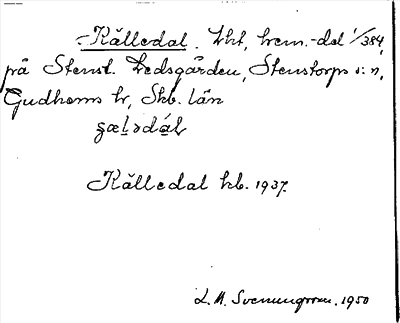 Källedal. lht, hem.-del 1/384,
på Stenst. Ledsgården, Stenstorps s:n,
Gudhems hr, Skb. län
Källedal kb. 1937.
L. M. Svenungsson. 1950